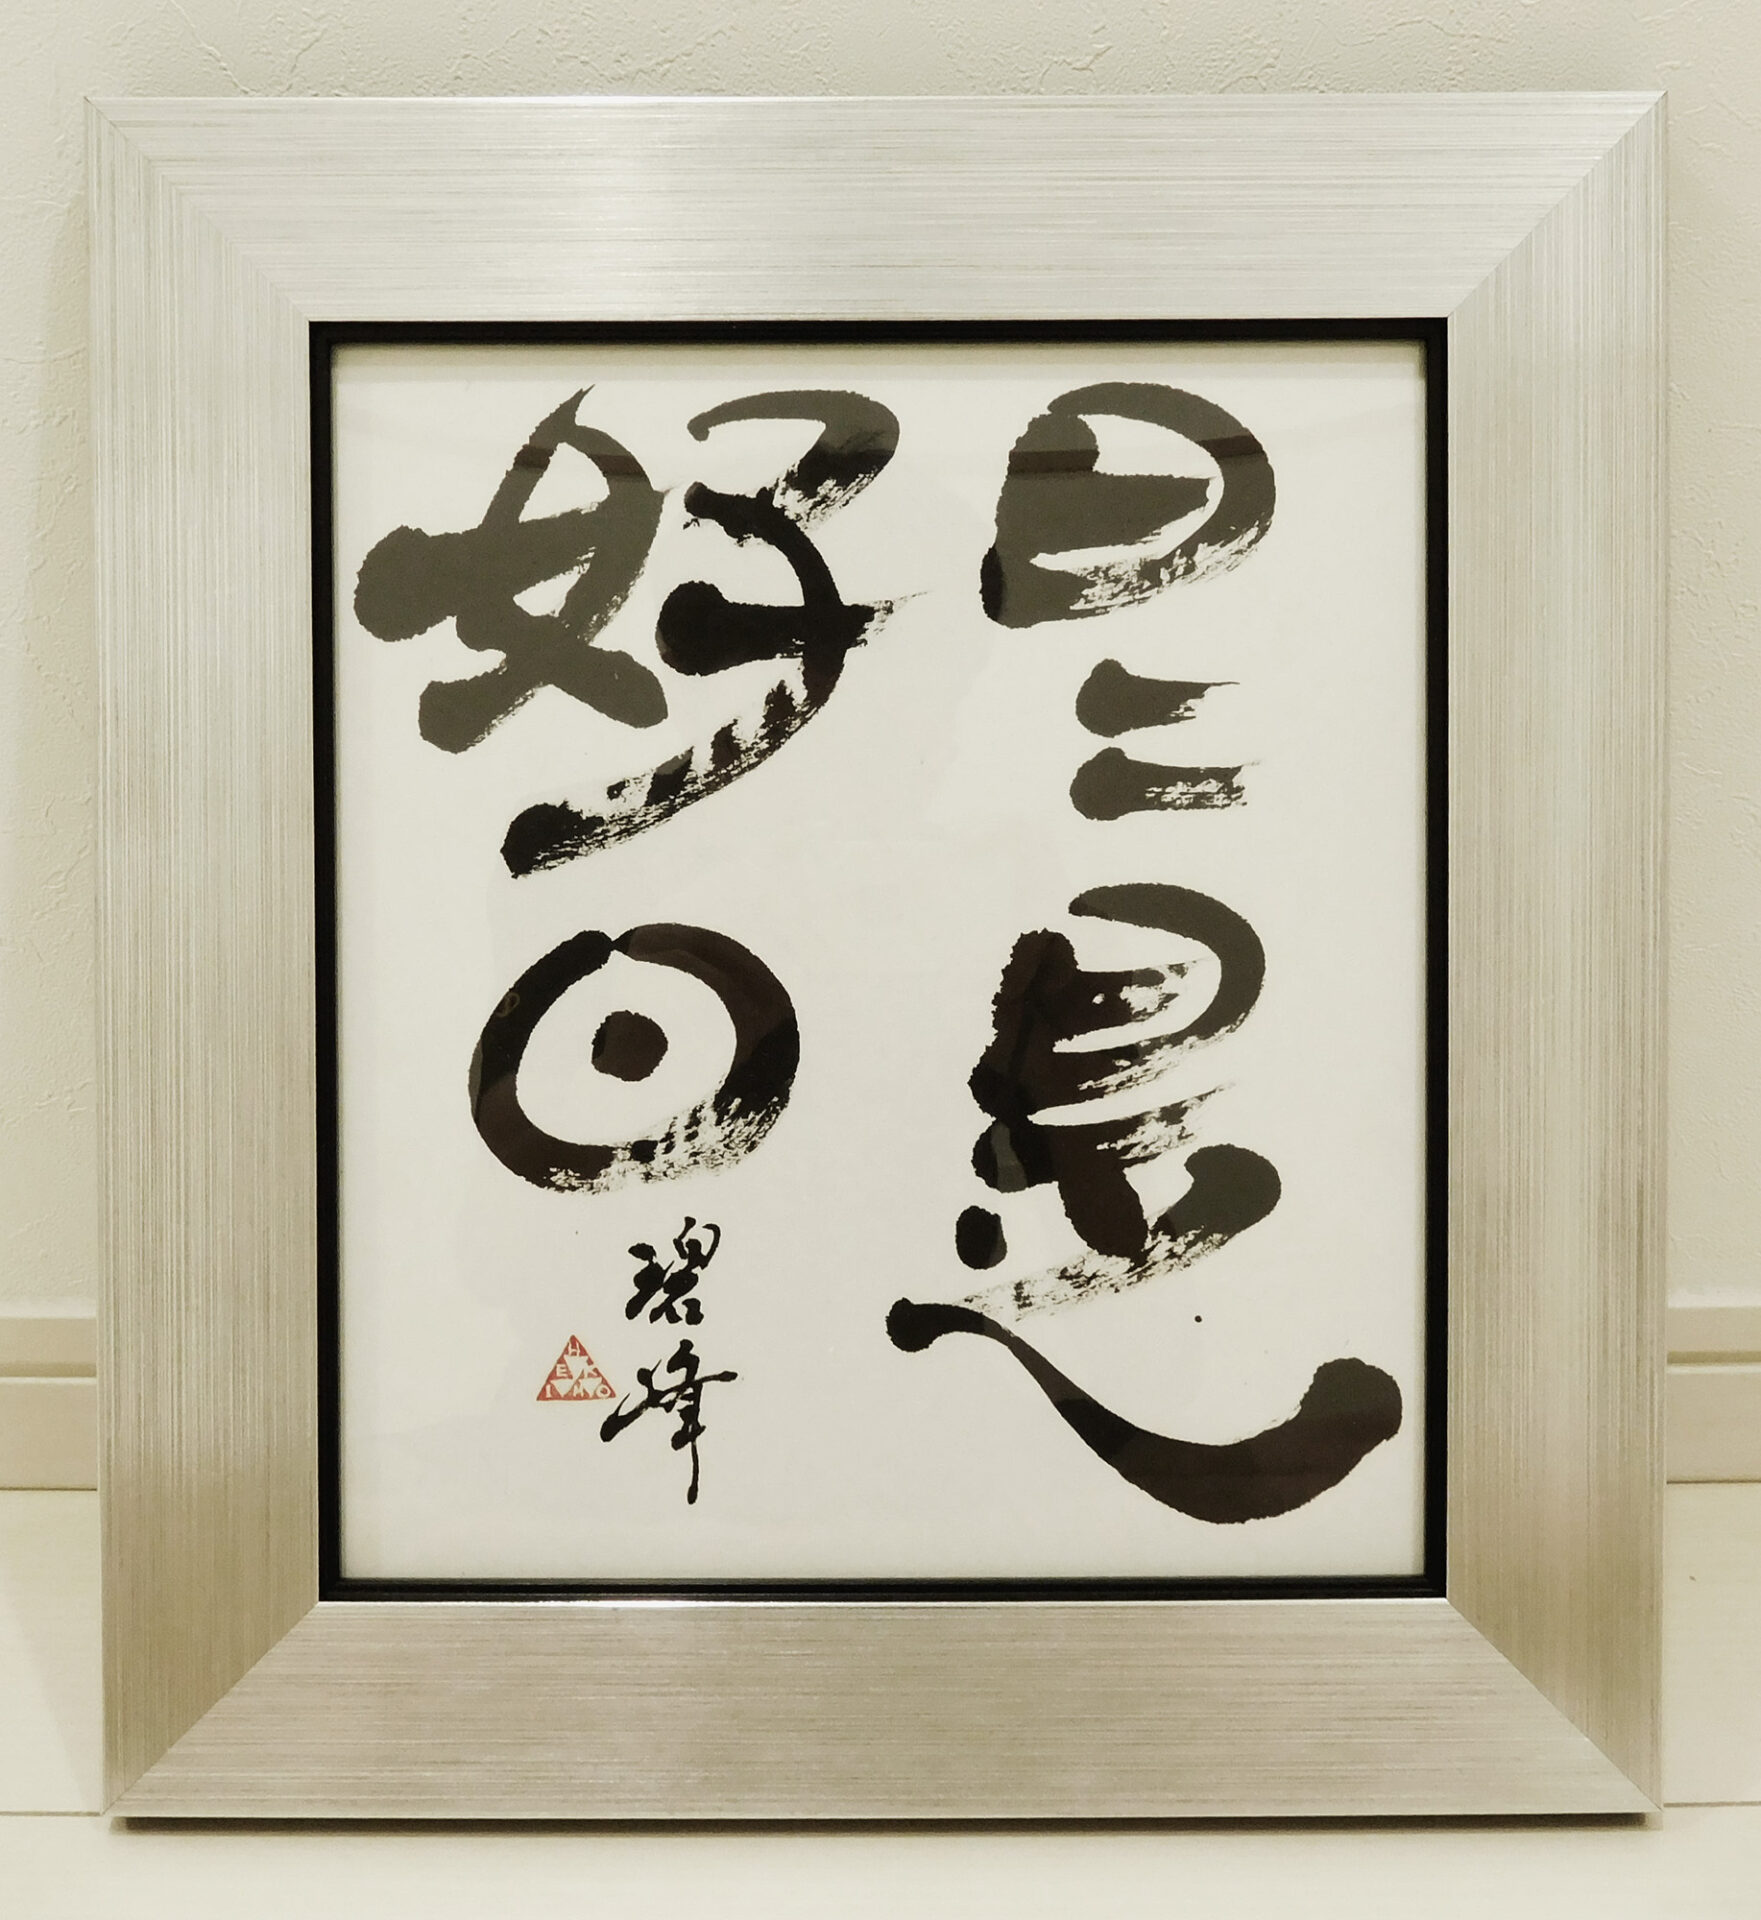 日々是
好日
碧峰
HEKIHO